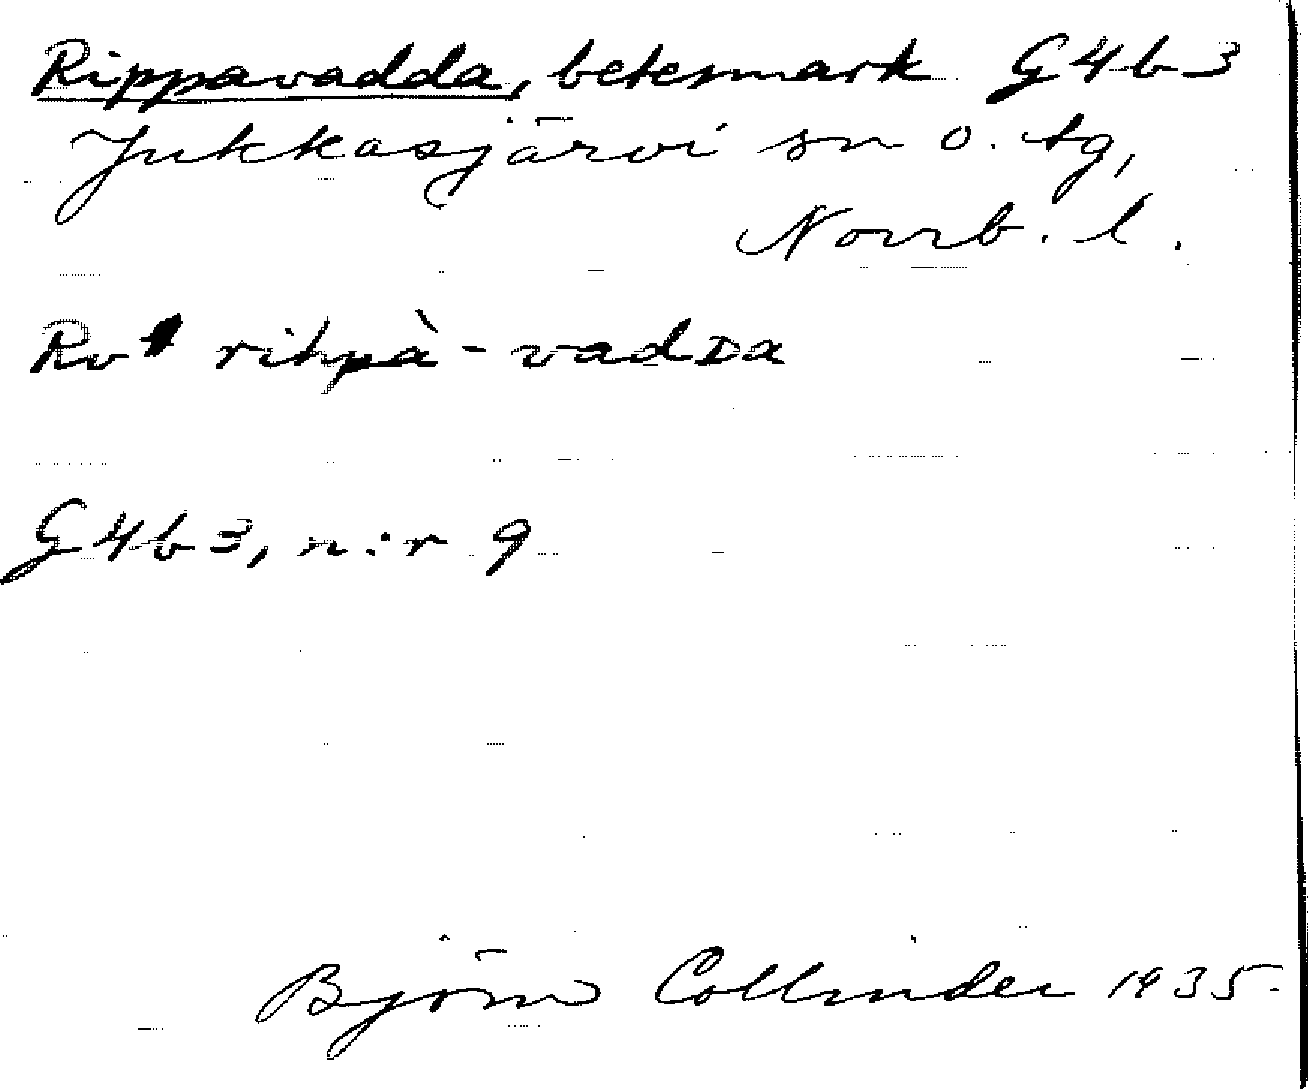 Rippavadda, betesmark G4b3
Jukkasjärvi sn o. tg,
Norrb. l.
Rv rihpà-vadDa
G4b3, n:r 9
Björn Collinder 1935.